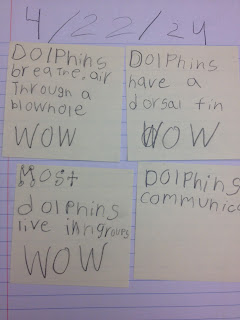 4/22/24
DOlPhins
breathe, air
Through a
blowhole
WOW
DOlPhins
have a
dorsal fin
WOW
MOst
dolphins
live in groups
WOW
DOlPhins
communic